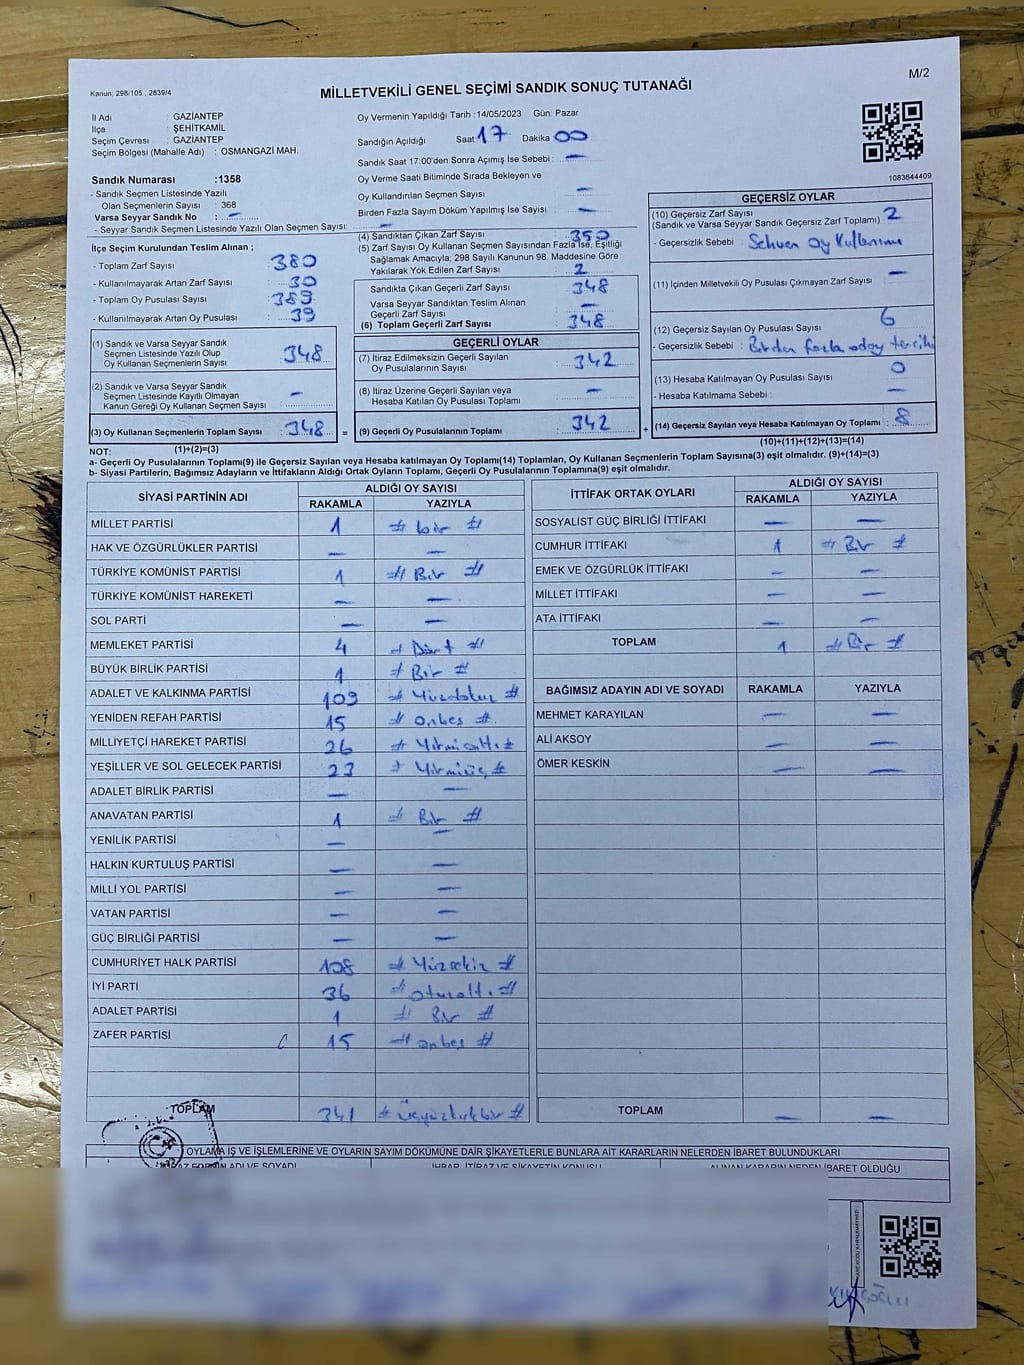 M/2
Kanun: 298/105 . 2839/4
MİLLETVEKİLİ GENEL SEÇİMİ SANDIK SONUÇ TUTANAĞI
İl Adı : GAZİANTEP
İlçe : ŞEHİTKAMİL
Seçim Çevresi : GAZİANTEP
Seçim Bölgesi (Mahalle Adı) : OSMANGAZİ MAH.
Sandık Numarası :1358
- Sandık Seçmen Listesinde Yazılı
Olan Seçmenlerin Sayısı : 368
Varsa Seyyar Sandık No : —
- Seyyar Sandık Seçmen Listesinde Yazılı Olan Seçmen Sayısı: —
Oy Vermenin Yapıldığı Tarih :14/05/2023 Gün: Pazar
Sandığın Açıldığı Saat 17 Dakika 00
Sandık Saat 17:00'den Sonra Açımış İse Sebebi : —
Oy Verme Saati Bitiminde Sırada Bekleyen ve
Oy Kullandırılan Seçmen Sayısı —
Birden Fazla Sayım Döküm Yapılmış İse Sayısı : —
1083644409
İlçe Seçim Kurulundan Teslim Alınan ;
- Toplam Zarf Sayısı : 380
- Kullanılmayarak Artan Zarf Sayısı : 30
- Toplam Oy Pusulası Sayısı : 389
- Kullanılmayarak Artan Oy Pusulası : 39
(1) Sandık ve Varsa Seyyar Sandık
Seçmen Listesinde Yazılı Olup
Oy Kullanan Seçmenlerin Sayısı : 348
(2) Sandık ve Varsa Seyyar Sandık
Seçmen Listesinde Kayıtlı Olmayan
Kanun Gereği Oy Kullanan Seçmen Sayısı : —
(3) Oy Kullanan Seçmenlerin Toplam Sayısı : 348 =
(1)+(2)=(3)
(4) Sandıktan Çıkan Zarf Sayısı : 350
(5) Zarf Sayısı Oy Kullanan Seçmen Sayısından Fazla İse, Eşitliği
Sağlamak Amacıyla; 298 Sayılı Kanunun 98. Maddesine Göre
Yakılarak Yok Edilen Zarf Sayısı : 2
Sandıkta Çıkan Geçerli Zarf Sayısı : 348
Varsa Seyyar Sandıktan Teslim Alınan
Geçerli Zarf Sayısı : —
(6) Toplam Geçerli Zarf Sayısı : 348
GEÇERLİ OYLAR
(7) İtiraz Edilmeksizin Geçerli Sayılan
Oy Pusulalarının Sayısı : 342
(8) İtiraz Üzerine Geçerli Sayılan veya
Hesaba Katılan Oy Pusulası Toplamı : —
(9) Geçerli Oy Pusulalarının Toplamı : 342 +
GEÇERSİZ OYLAR
(10) Geçersiz Zarf Sayısı
(Sandık ve Varsa Seyyar Sandık Geçersiz Zarf Toplamı) 2
- Geçersizlik Sebebi : Sehven Oy Kullanımı
(11) İçinden Milletvekili Oy Pusulası Çıkmayan Zarf Sayısı : —
(12) Geçersiz Sayılan Oy Pusulası Sayısı : 6
- Geçersizlik Sebebi : Birden fazla aday tercihi
(13) Hesaba Katılmayan Oy Pusulası Sayısı : 0
- Hesaba Katılmama Sebebi : —
(14) Geçersiz Sayılan veya Hesaba Katılmayan Oy Toplamı : 8
(10)+(11)+(12)+(13)=(14)
NOT:
a- Geçerli Oy Pusulalarının Toplamı(9) ile Geçersiz Sayılan veya Hesaba katılmayan Oy Toplamı(14) Toplamları, Oy Kullanan Seçmenlerin Toplam Sayısına(3) eşit olmalıdır. (9)+(14)=(3)
b- Siyasi Partilerin, Bağımsız Adayların ve İttifakların Aldığı Ortak Oyların Toplamı, Geçerli Oy Pusulalarının Toplamına(9) eşit olmalıdır.
SİYASİ PARTİNİN ADI ALDIĞI OY SAYISI
RAKAMLA YAZIYLA
MİLLET PARTİSİ 1 # bir #
HAK VE ÖZGÜRLÜKLER PARTİSİ — —
TÜRKİYE KOMÜNİST PARTİSİ 1 # Bir #
TÜRKİYE KOMÜNİST HAREKETİ — —
SOL PARTİ — —
MEMLEKET PARTİSİ 4 # Dört #
BÜYÜK BİRLİK PARTİSİ 1 # Bir #
ADALET VE KALKINMA PARTİSİ 109 # Yüzdokuz #
YENİDEN REFAH PARTİSİ 15 # onbeş #
MİLLİYETÇİ HAREKET PARTİSİ 26 # Yirmialtı #
YEŞİLLER VE SOL GELECEK PARTİSİ 23 # Yirmiüç #
ADALET BİRLİK PARTİSİ — —
ANAVATAN PARTİSİ 1 # Bir #
YENİLİK PARTİSİ — —
HALKIN KURTULUŞ PARTİSİ — —
MİLLİ YOL PARTİSİ — —
VATAN PARTİSİ — —
GÜÇ BİRLİĞİ PARTİSİ — —
CUMHURİYET HALK PARTİSİ 108 # Yüzsekiz #
İYİ PARTİ 36 # otuzaltı #
ADALET PARTİSİ 1 # Bir #
ZAFER PARTİSİ 15 # onbeş #
TOPLAM 341 # Üçyüzkırkbir #
İTTİFAK ORTAK OYLARI ALDIĞI OY SAYISI
RAKAMLA YAZIYLA
SOSYALİST GÜÇ BİRLİĞİ İTTİFAKI — —
CUMHUR İTTİFAKI 1 # Bir #
EMEK VE ÖZGÜRLÜK İTTİFAKI — —
MİLLET İTTİFAKI — —
ATA İTTİFAKI — —
TOPLAM 1 # Bir #
BAĞIMSIZ ADAYIN ADI VE SOYADI RAKAMLA YAZIYLA
MEHMET KARAYILAN — —
ALİ AKSOY — —
ÖMER KESKİN — —
TOPLAM — —
OYLAMA İŞ VE İŞLEMLERİNE VE OYLARIN SAYIM DÖKÜMÜNE DAİR ŞİKAYETLERLE BUNLARA AİT KARARLARIN NELERDEN İBARET BULUNDUKLARI
ADI VE SOYADI İHBAR, İTİRAZ VE ŞİKAYETİN KONUSU ALINAN KARARIN NEDEN İBARET OLDUĞU